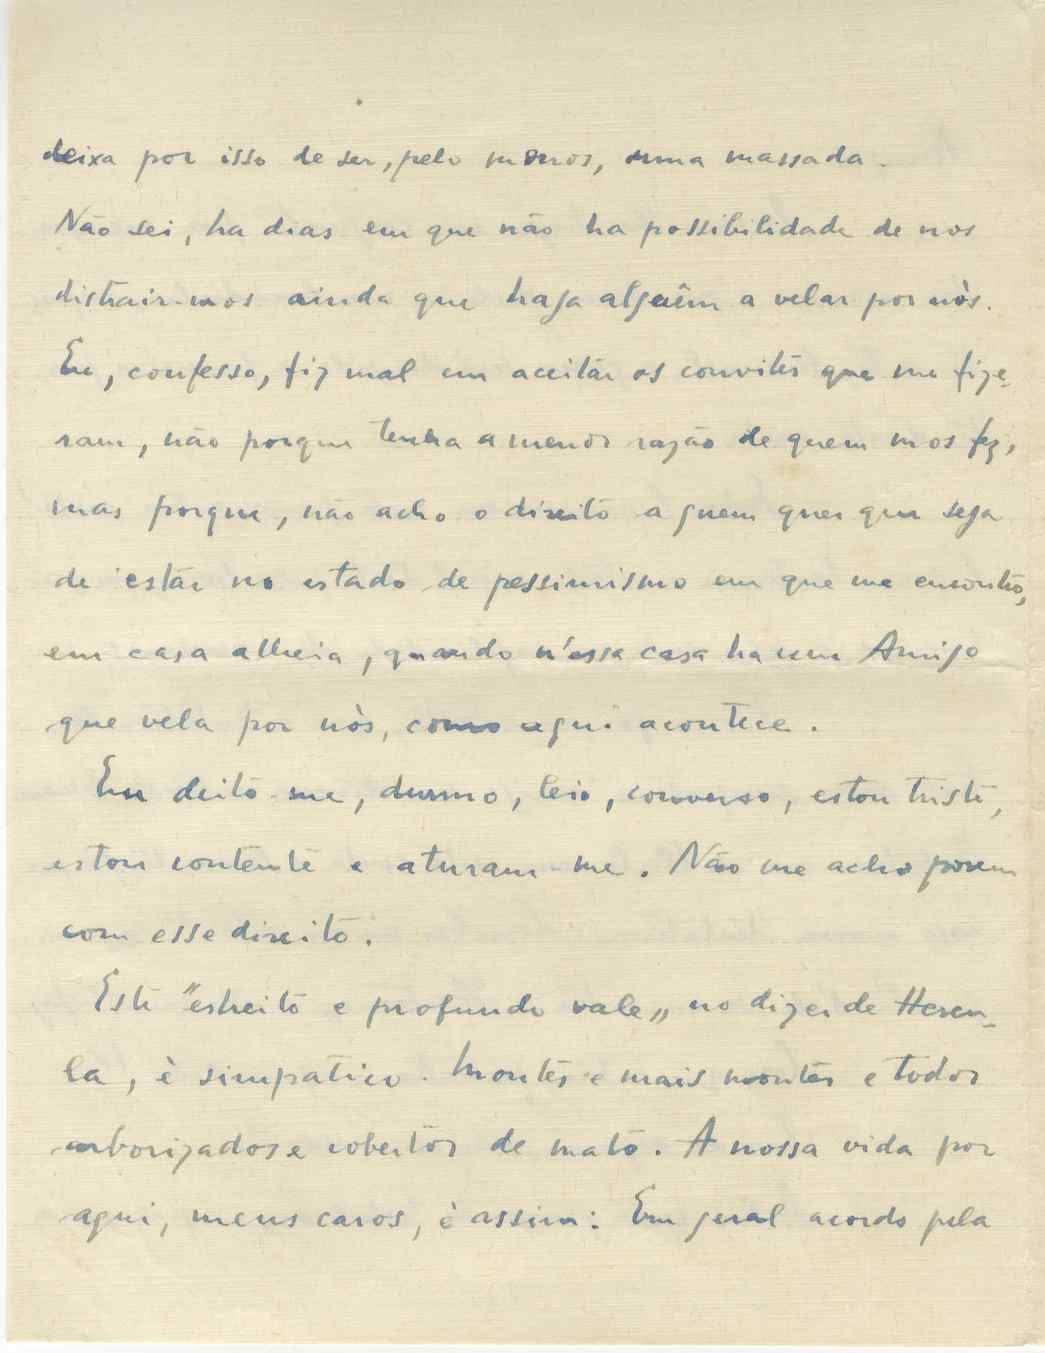 deixa por isso de ser, pelo menos, uma massada.
Não sei, ha dias em que não ha possibilidade de nos
distrair-mos ainda que haja alguêm a velar por nòs.
Eu, confesso, fiz mal em aceitár os convites que me fize-
ram, não porque tenha a menor razão de quem mos fez,
mas porque, não acho o direito a quem quer que seja
de estár no estado de pessimismo em que me encontro,
em casa alheia, quando n'essa casa ha um Amigo
que vela por nòs, como aqui acontece.
Eu deito-me, durmo, leio, converso, estou triste,
estou contente e aturam-me. Não me acho porem
com esse direito.
Este "estreito e profundo vale„ no dizer de Hercu-
la, è simpatico. Montes e mais montes e todos
arborizados e cobertos de mato. A nossa vida por
aqui, meus caros, è assim: Em geral acordo pela